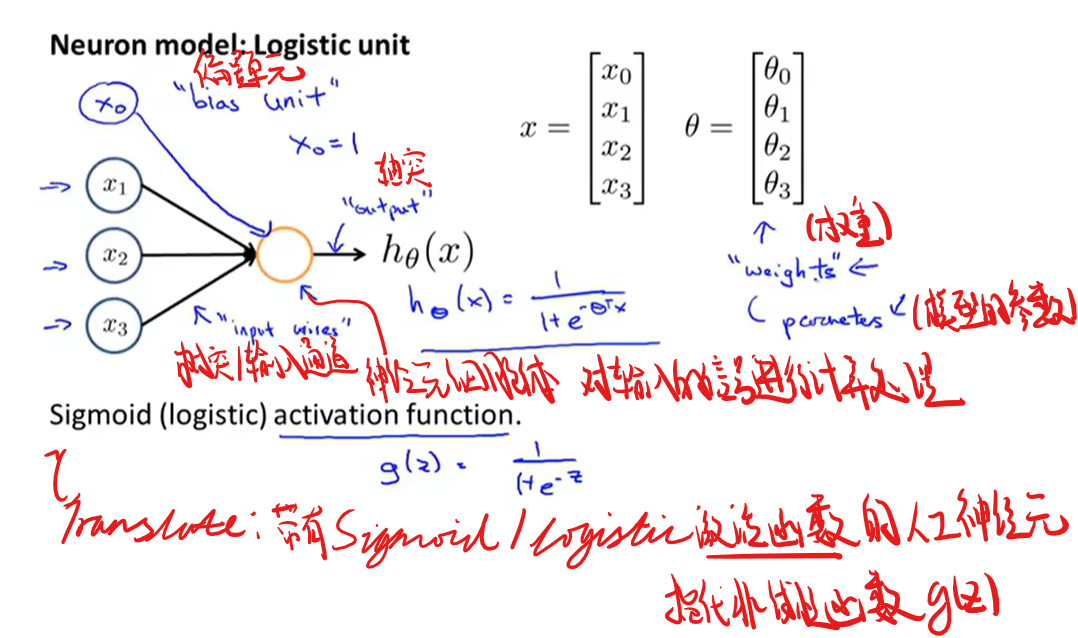 Neuron model: Logistic unit
偏置单元
x₀ "bias unit"
x₀ = 1
x₁
x₂
x₃
轴突
"output"
hθ(x)
hθ(x) = 1 / (1+e^(-θᵀx))
"input wires"
树突/输入通道
神经元细胞体 对输入的信号进行计算处理
x = [x₀ x₁ x₂ x₃]
θ = [θ₀ θ₁ θ₂ θ₃]
(权重)
"weights" ←
parameters (模型的参数)
Sigmoid (logistic) activation function.
g(z) = 1 / (1+e^(-z))
Translate: 带有Sigmoid/logistic激活函数的人工神经元
指代非线性函数g(z)